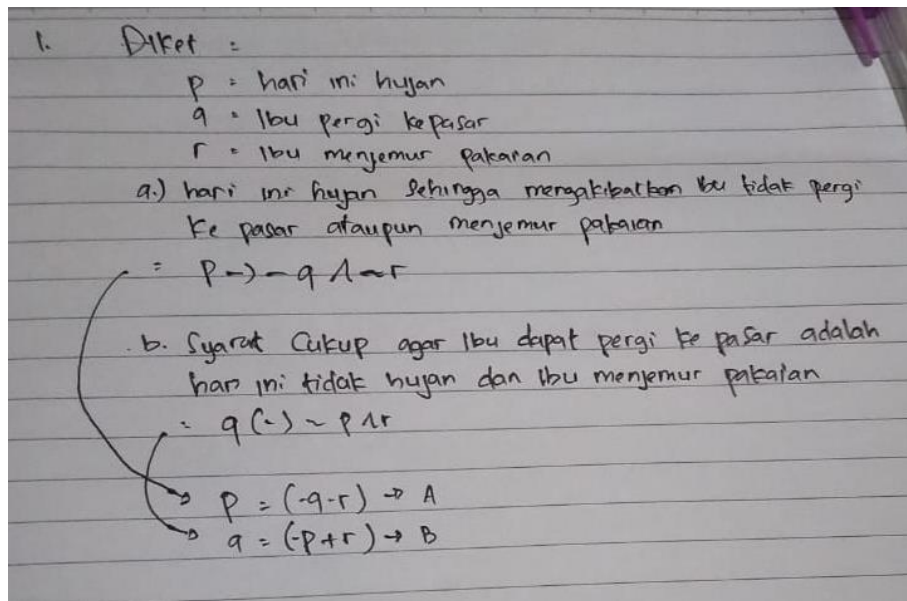 1. Diket :
p = hari ini hujan
q = Ibu pergi kepasar
r = Ibu menjemur pakaian
a.) hari ini hujan sehingga mengakibatkan ibu tidak pergi
ke pasar ataupun menjemur pakaian
= p -> - q ∧ ~r
b. Syarat Cukup agar Ibu dapat pergi ke pasar adalah
hari ini tidak hujan dan Ibu menjemur pakaian
= q (-) ~ p ∧ r
p = (-q-r) → A
q = (-p+r) → B